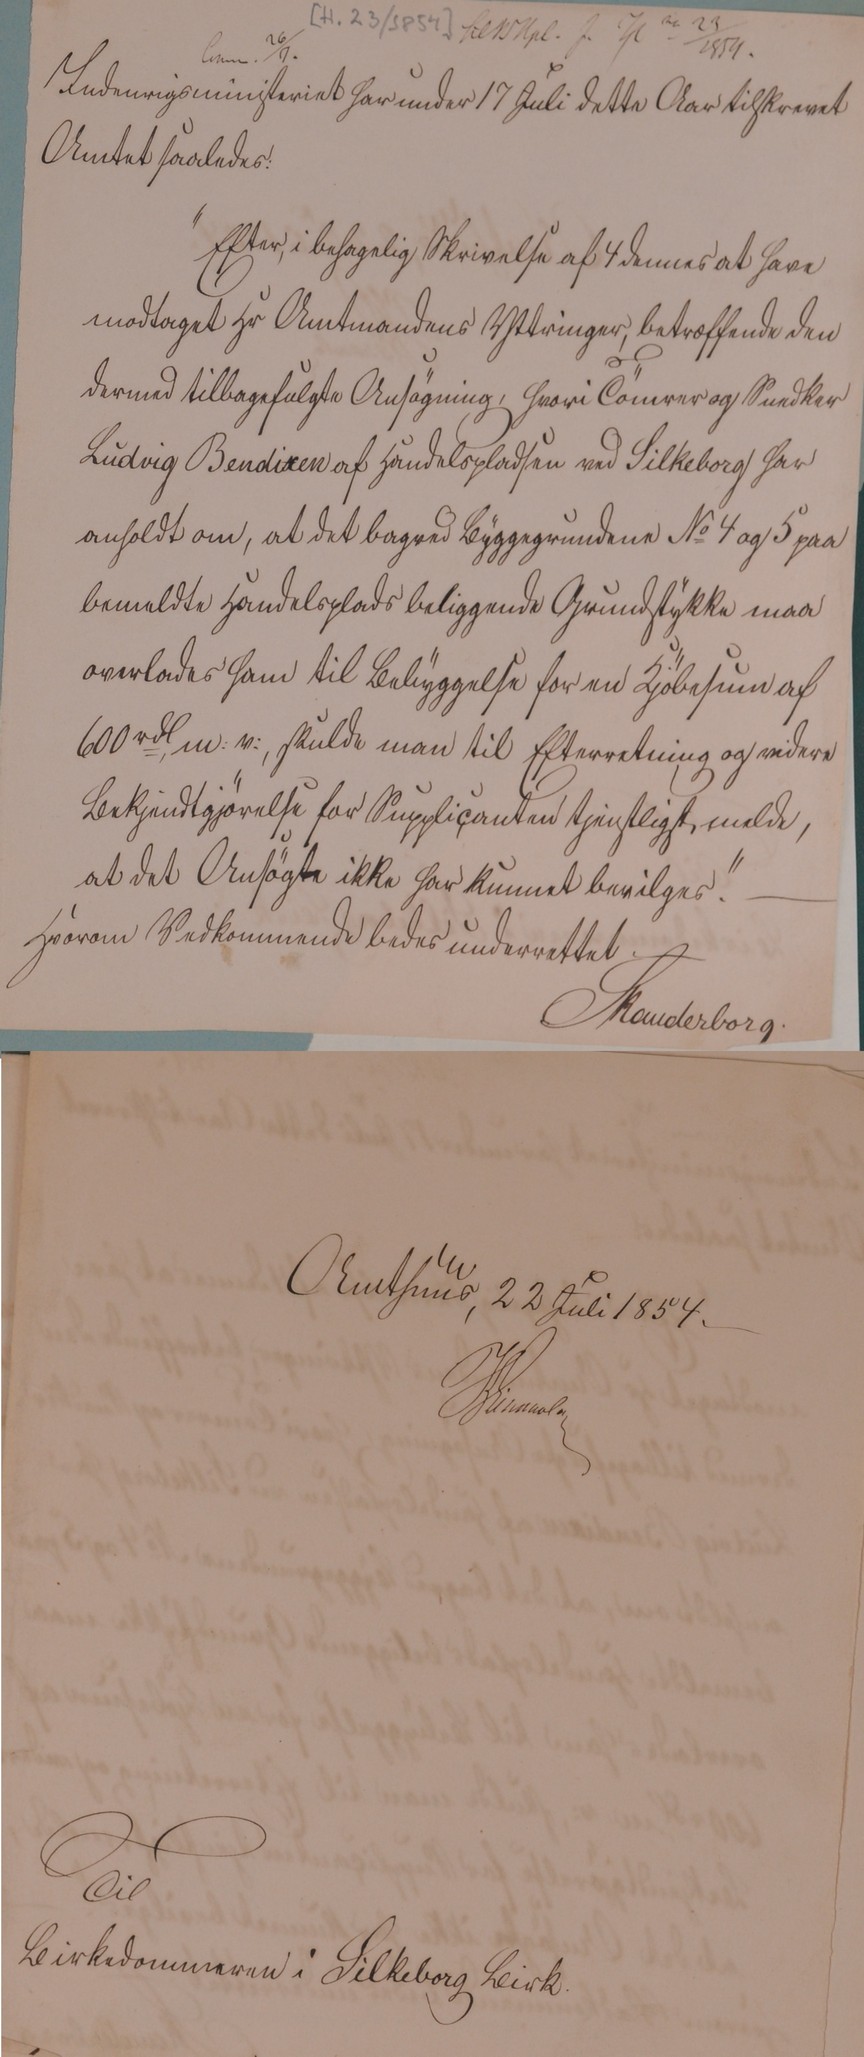 [H. 23/1854]
23/1854.
26/7.
Indenrigsministeriet har under 17 Juli dette Aar tilskrevet
Amtet saaledes:
"Efter, i behagelig Skrivelse af 4 dennes at have
modtaget Hr Amtmandens Yttringer, betræffende den
dermed tilbagefulgte Ansögning, hvori Tömrer og Snedker
Ludvig Bendixen af Handelspladsen ved Silkeborg har
anholdt om, at det bagved Byggegrundene No 4 og 5 paa
bemeldte Handelsplads beliggende Grundstykke maa
overlades ham til Bebyggelse for en Kjöbesum af
600 rdl, m: v:, skulde man til Efterretning og videre
Bekjendtgjörelse for Supplicanten tjenstligst melde,
at det Ansögte ikke har kunnet bevilges." —
Hvorom Vedkommende bedes underrettet.
Skanderborg.
Amthuus, 22 Juli 1854.
Til
Birkedommeren i Silkeborg Birk.